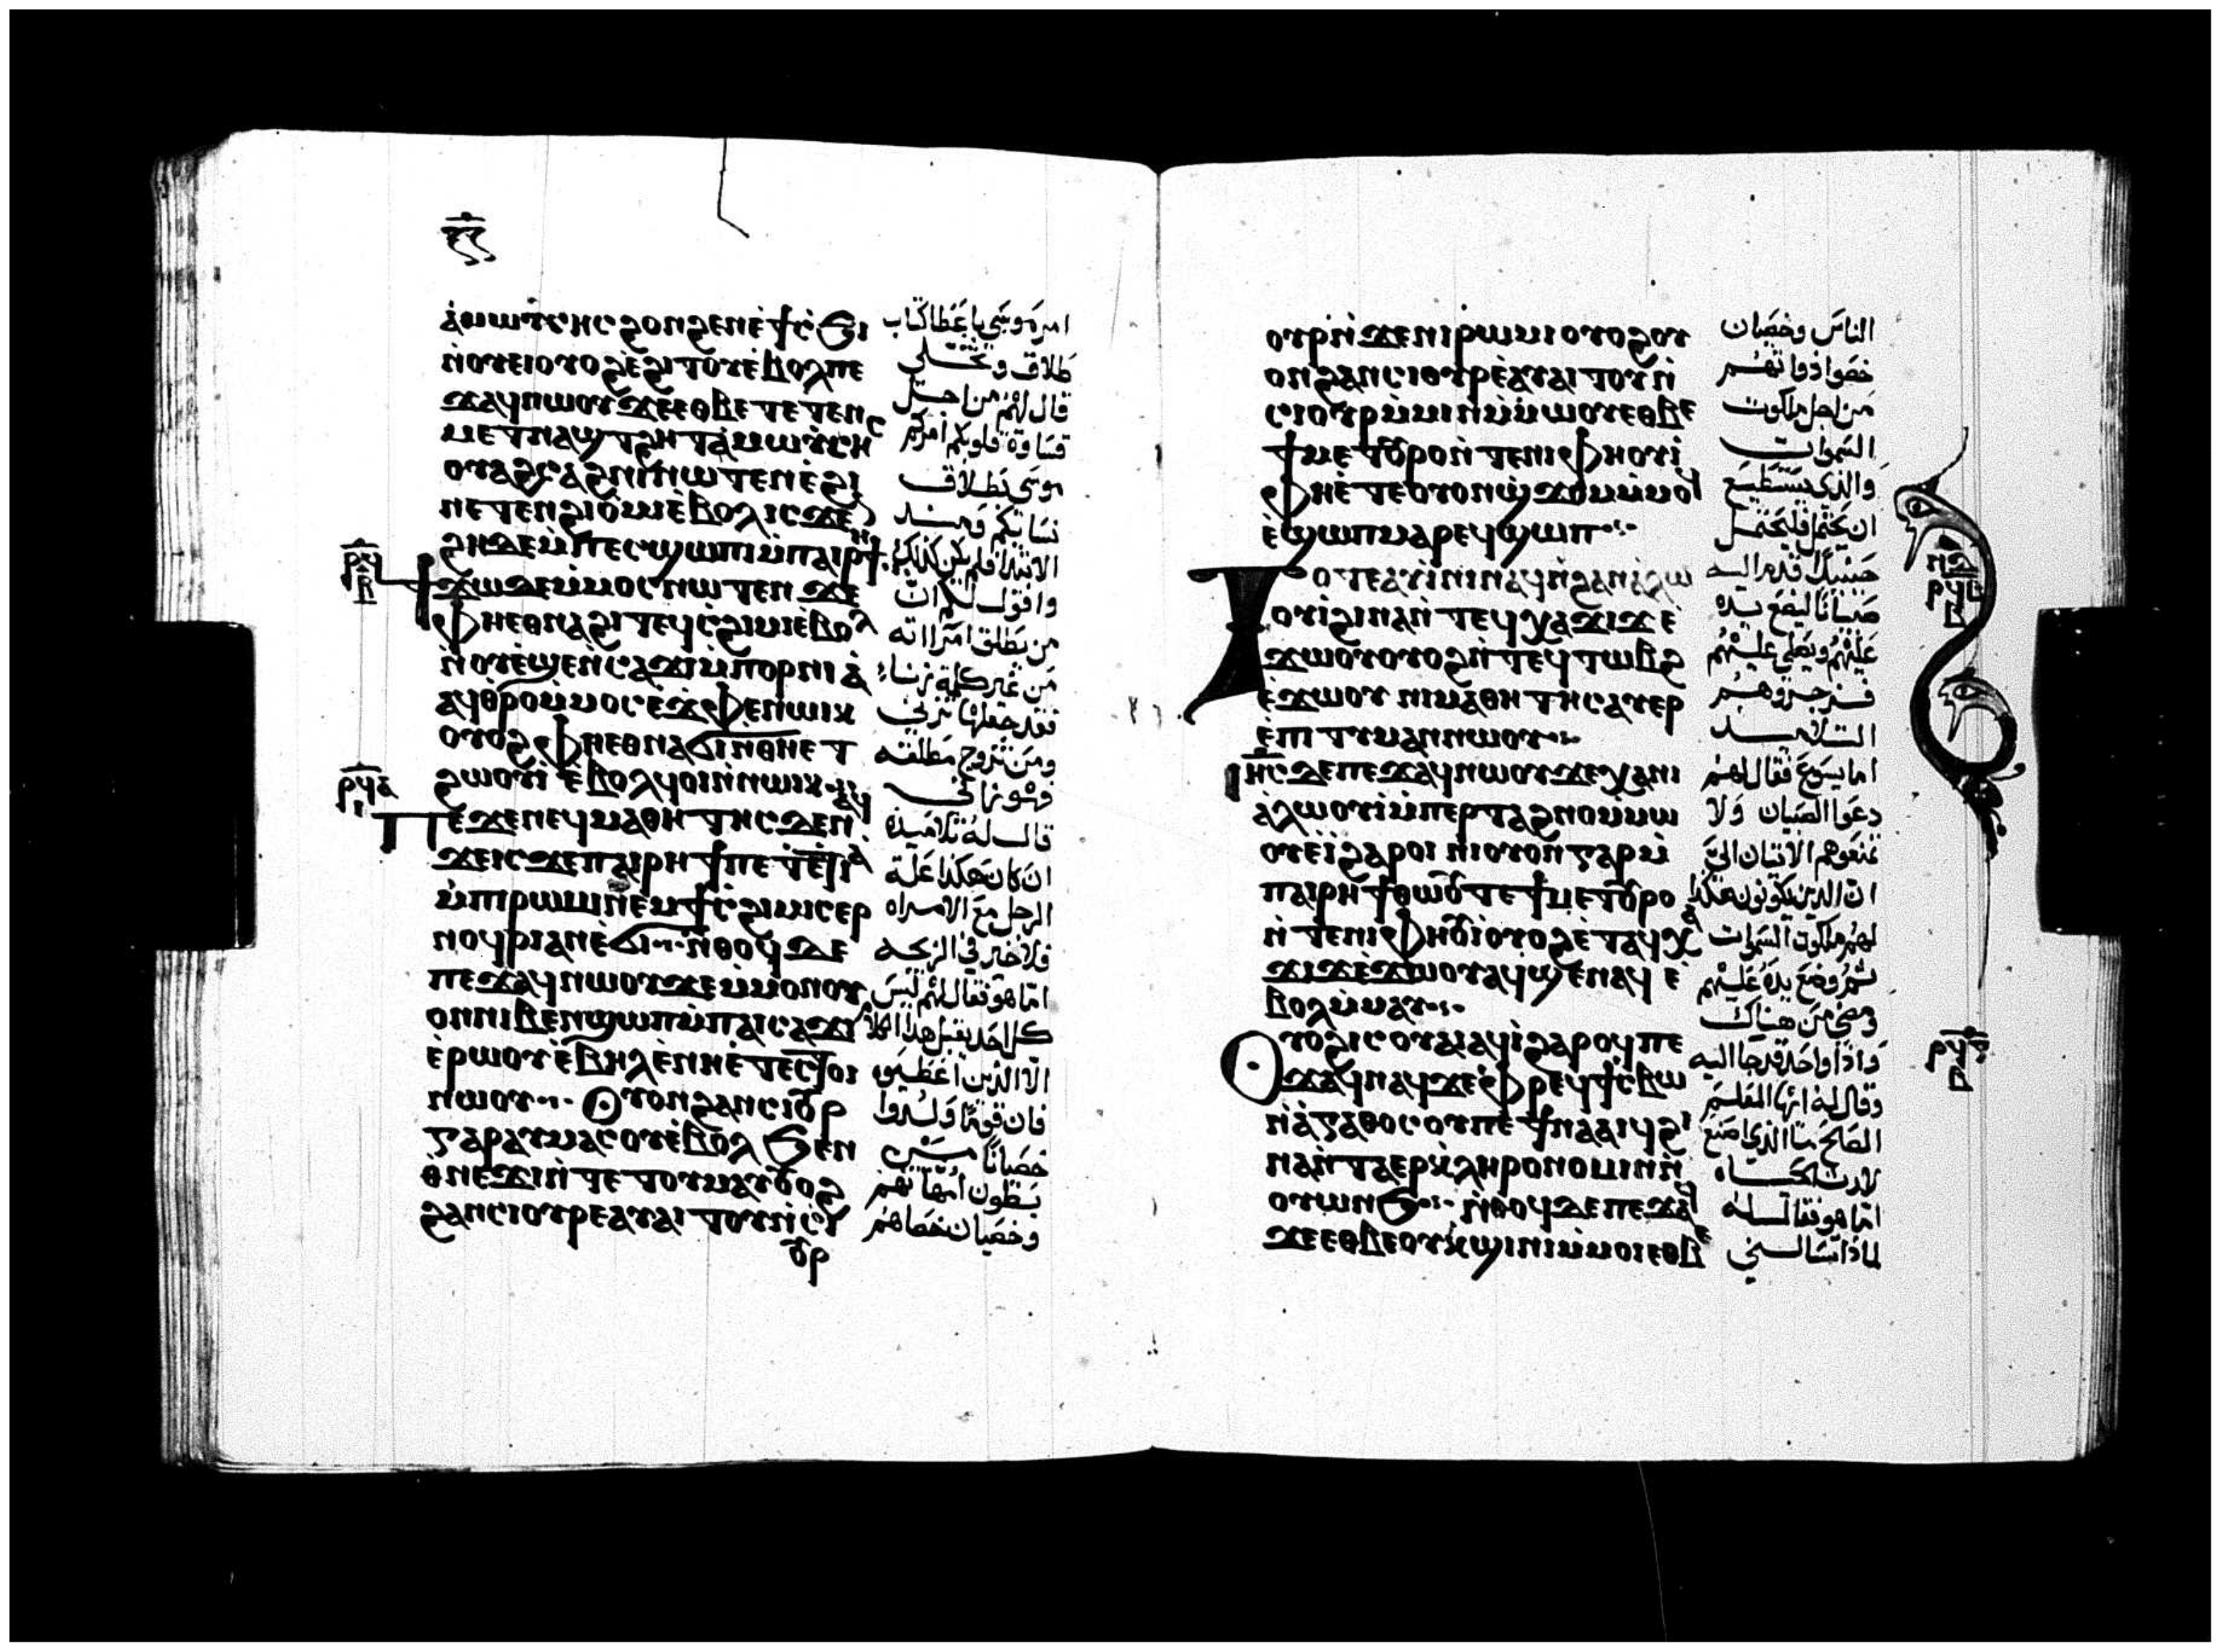 ⲁⲙⲱⲩⲥⲏⲥ ϩⲟⲛϩⲉⲛ ⲉϯ ⲥϧⲓ
ⲛⲟⲩⲉⲓ ⲟⲩⲟϩ ⲉϩⲓⲧⲟⲩ ⲉⲃⲟⲗ ⲡⲉ
ϫⲁϥ ⲛⲱⲟⲩ ϫⲉ ⲉⲑⲃⲉ ⲧⲉⲧⲉⲛ
ⲙⲉⲧⲛⲁϣⲧϩⲏⲧ ⲁⲙⲱⲩⲥⲏⲥ
ⲟⲩⲁϩⲥⲁϩⲛⲓ ⲛⲱⲧⲉⲛ ⲉϩⲓ
ⲛⲉⲧⲉⲛϩⲓⲟⲙⲓ ⲉⲃⲟⲗ ⲓⲥϫⲉⲛ
ϩⲏ ⲇⲉ ⲙⲡⲉⲥϣⲱⲡⲓ ⲙⲡⲁⲓⲣⲏϯ
ϯϫⲱ ⲇⲉ ⲙⲙⲟⲥ ⲛⲱⲧⲉⲛ ϫⲉ
ⲫⲏ ⲉⲑⲛⲁϩⲓ ⲧⲉϥⲥϩⲓⲙⲓ ⲉⲃⲟⲗ
ⲛⲟⲩⲉϣⲉⲛ ⲥⲁϫⲓ ⲙⲡⲟⲣⲛⲓⲁ
ⲁϥⲑⲣⲟ ⲙⲙⲟⲥ ⲉϫⲫⲉ ⲛⲱⲓⲕ
ⲟⲩⲟϩ ⲫⲏ ⲉⲑⲛⲁϭⲓ ⲛⲑⲏ ⲉⲧ
ϩⲱⲟⲩⲓ ⲉⲃⲟⲗ ϥⲟⲓ ⲛⲛⲱⲓⲕ
ⲡⲉϫⲉ ⲛⲉϥⲙⲁⲑⲏⲧⲏⲥ ⲇⲉ ⲛⲁϥ
ϫⲉ ⲓⲥϫⲉ ⲡⲁⲓⲣⲏϯ ⲡⲉ ⲧⲉⲧⲓⲁ
ⲙⲡⲓⲣⲱⲙⲓ ⲛⲉⲙ ϯⲥϩⲓⲙⲓ ⲥⲉⲣ
ⲛⲟϥⲣⲓ ⲁⲛ ⲉϭⲓ ⲛⲑⲟϥ ⲇⲉ
ⲡⲉϫⲁϥ ⲛⲱⲟⲩ ϫⲉ ⲙⲙⲟⲛ ⲟⲩ
ⲟⲛ ⲛⲓⲃⲉⲛ ϣⲱⲡ ⲙⲡⲁⲓⲥⲁϫⲓ
ⲉⲣⲱⲟⲩ ⲉⲃⲏⲗ ⲉⲛⲏ ⲉⲧⲉⲥⲧⲟⲓ
ⲛⲱⲟⲩ ⲟⲩⲟⲛ ϩⲁⲛⲥⲓⲟⲩⲣ
ⲅⲁⲣ ⲁⲩⲙⲁⲥⲟⲩ ⲉⲃⲟⲗ ϧⲉⲛ
ⲑⲛⲉϫⲓ ⲛⲧⲉ ⲧⲟⲩⲙⲁⲩ ⲟⲩⲟϩ
ϩⲁⲛⲥⲓⲟⲩⲣ ⲉⲁⲩⲁⲓⲧⲟⲩ ⲛⲥⲓ
ⲟⲩⲣ
امر موسى بان عطا كتاب
طلاق وتخلى
قال لهم من اجل
قساوة قلوبكم امركم
موسى بطلاق
نسائكم ومنذ
الابتدا فلم يكن كذلك
واقول لكم ان
من يطلق امراته
من غير كلمة زنا
فقد جعلها تزني
ومن تزوج مطلقه
فهو زاني
قال له تلاميذه
ان كان هكذا علة
الرجل مع الامراه
فلا خير في الزيجه
اما هو فقال لهم ليس
كل احد يقبل هذا الكلام
الا الذين اعطيوا
فان قوما ولدوا
خصيانا من
بطون امهاتهم
وخصيان خصاهم
ⲟⲩⲣ ⲛϫⲉ ⲛⲓⲣⲱⲙⲓ ⲟⲩⲟϩ ⲟⲩ
ⲟⲛ ϩⲁⲛⲥⲓⲟⲩⲣ ⲉⲁⲩⲁⲓⲧⲟⲩ ⲛ
ⲥⲓⲟⲩⲣ ⲙⲙⲓⲛ ⲙⲙⲱⲟⲩ ⲉⲑⲃⲉ
ϯⲙⲉⲧⲟⲩⲣⲟ ⲛⲧⲉ ⲛⲓⲫⲏⲟⲩⲓ
ⲫⲏ ⲉⲧⲉ ⲟⲩⲟⲛ ϣϫⲟⲙ ⲙⲙⲟϥ
ⲉϣⲱⲡ ⲙⲁⲣⲉϥϣⲱⲡ
ⲧⲟⲧⲉ ⲁⲩⲓⲛⲓ ⲛⲁϥ ⲛϩⲁⲛⲁⲗⲱ
ⲟⲩⲓ ϩⲓⲛⲁ ⲛⲧⲉϥⲭⲁ ϫⲓϫ ⲉ
ϫⲱⲟⲩ ⲟⲩⲟϩ ⲛⲧⲉϥⲧⲱⲃϩ
ⲉϫⲱⲟⲩ ⲛⲓⲙⲁⲑⲏⲧⲏⲥ ⲁⲩⲉⲣ
ⲉⲡⲓⲧⲩⲙⲁⲛ ⲛⲱⲟⲩ
ⲓⲏⲥ ⲇⲉ ⲡⲉϫⲁϥ ⲛⲱⲟⲩ ϫⲉ ⲭⲁ ⲛⲓ
ⲁⲗⲱⲟⲩⲓ ⲙⲡⲉⲣⲧⲁϩⲛⲟ ⲙⲙⲱ
ⲟⲩ ⲉⲓ ϩⲁⲣⲟⲓ ⲛⲓⲟⲩⲟⲛ ⲅⲁⲣ ⲙ
ⲡⲁⲓⲣⲏϯ ⲑⲱⲟⲩ ⲧⲉ ϯⲙⲉⲧⲟⲩⲣⲟ
ⲛⲧⲉ ⲛⲓⲫⲏⲟⲩⲓ ⲟⲩⲟϩ ⲉⲧⲁϥⲭⲁ
ϫⲓϫ ⲉϫⲱⲟⲩ ⲁϥϣⲉⲛⲁϥ ⲉ
ⲃⲟⲗ ⲙⲙⲁⲩ
ⲟⲩⲟϩ ⲓⲥ ⲟⲩⲁⲓ ⲁϥⲓ ϩⲁⲣⲟϥ ⲡⲉ
ϫⲁϥ ⲛⲁϥ ϫⲉ ⲫⲣⲉϥϯⲥⲃⲱ
ⲛⲁⲅⲁⲑⲟⲥ ⲟⲩ ⲡⲉ ϯⲛⲁⲁⲓϥ ϩⲓ
ⲛⲁ ⲛⲧⲁⲉⲣⲕⲗⲏⲣⲟⲛⲟⲙⲓⲛ ⲛ
ⲟⲩⲱⲛϧ ⲛⲑⲟϥ ⲇⲉ ⲡⲉϫⲁϥ
ϫⲉ ⲉⲑⲃⲉ ⲟⲩ ⲕϣⲓⲛⲓ ⲙⲙⲟⲓ ⲉⲑⲃⲉ
الناس وخصيان
خصوا ذواتهم
من اجل ملكوت
السموات
والذي يستطيع
ان يحتمل فليحتمل
حينيذ قدم اليه
صبيانا ليضع يده
عليهم ويصلي عليهم
فزجروهم
التلاميذ
اما يسوع فقال لهم
دعوا الصبيان ولا
تمنعوهم الاتيان الي
ان الذين يكونون هكذا
لهم ملكوت السموات
ثم وضع يده عليهم
ومضى من هناك
واذا واحد قد جا اليه
وقال له ايها المعلم
الصالح ما الذي اصنع
لارث الحياه
اما هو فقال له
لماذا تسالني